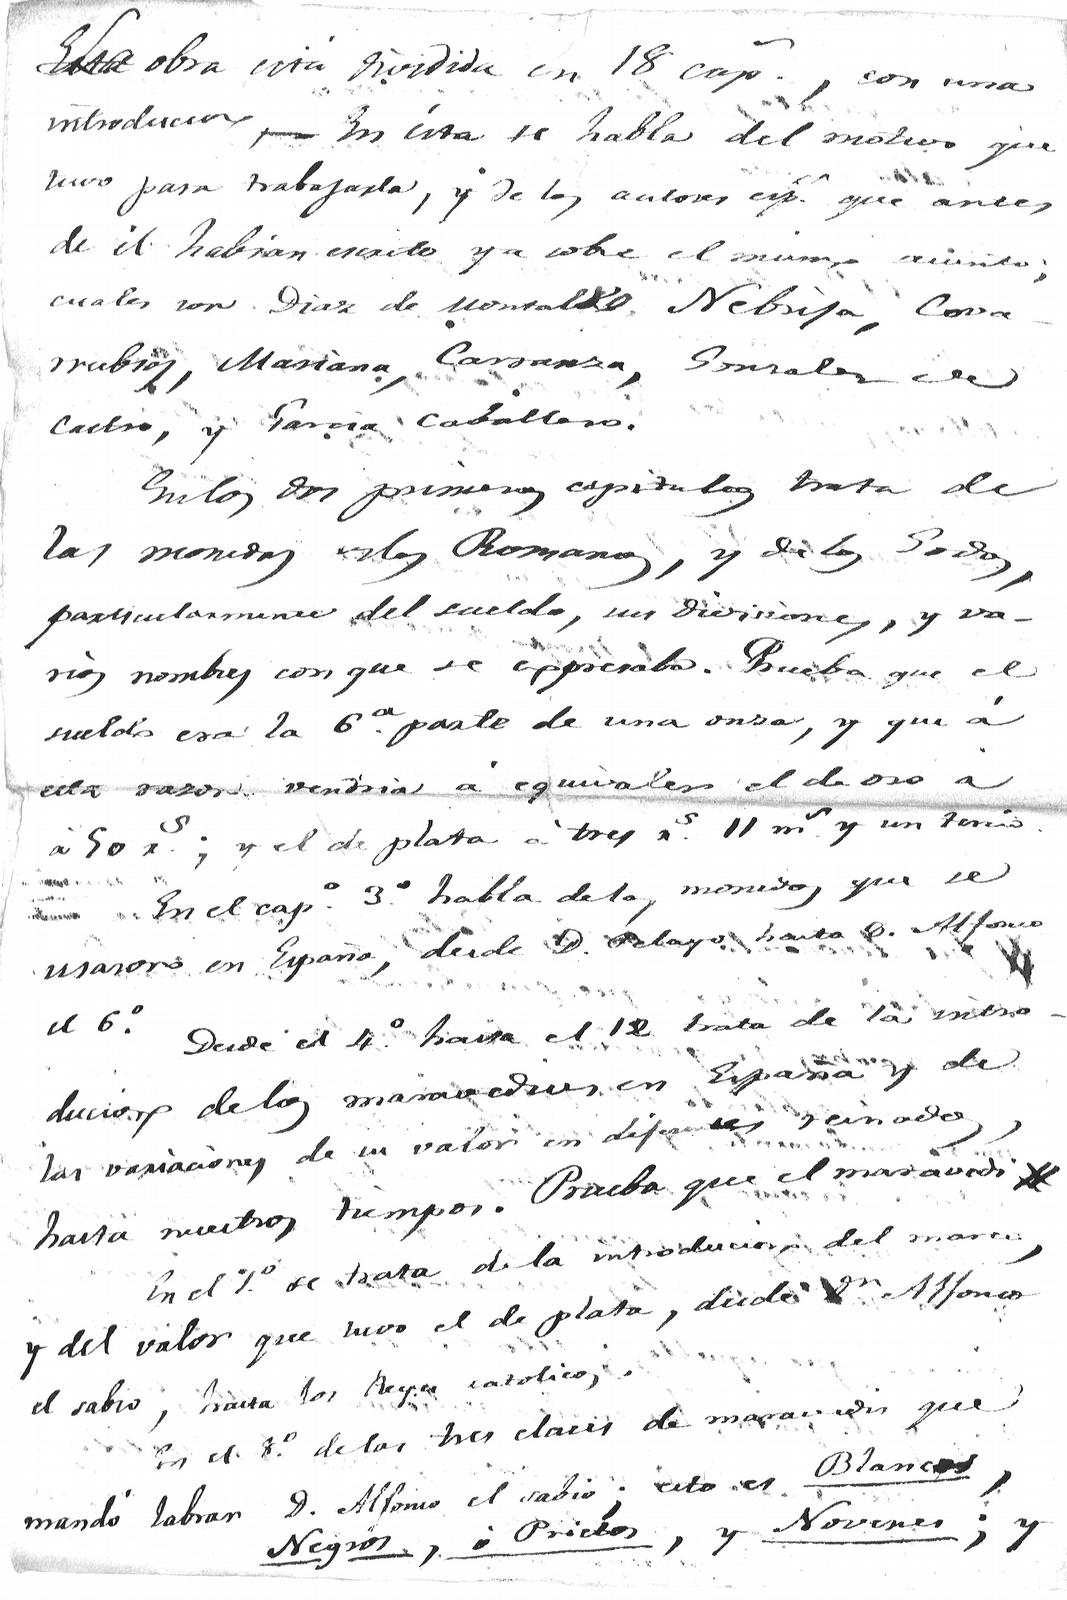 Esta obra está dividida en 18 cap.s, con una
introduccion — En ésta se habla del motivo que
tuvo para trabajarla, y de los autores esp.s que antes
de él habian escrito ya sobre el mismo asunto;
cuales son Diaz de Montalvo, Nebrija, Cova-
rrubias, Mariana, Carranza, Gonzalez de
Castro, y Garcia Caballero.
En los dos primeros capitulos trata de
las monedas de los Romanos, y de los Godos,
particularmente del sueldo, sus divisiones, y va-
rios nombres con que se expresaba. Prueba que el
sueldo era la 6.a parte de una onza, y que á
esta razon vendria á equivaler el de oro á
á 50 r.s; y el de plata á tres r.s 11 m.s y un tercio.
En el cap.o 3.o habla de las monedas que se
usaron en España, desde D. Pelayo hasta D. Alfonso
el 6.o Desde el 4.o hasta el 12 trata de la intro-
duccion de los maravedises en España y de
las variaciones de su valor en diferentes reinados,
hasta nuestros tiempos. Prueba que el maravedi
En el 7.o se trata de la introduccion del marco,
y del valor que tuvo el de plata, desde Dn Alfonso
el sabio, hasta los Reyes catolicos.
En el 8.o de las tres clases de maravedis que
mandó labrar D. Alfonso el sabio; esto es Blancos,
Negros, ó Prietos, y Novenes; y